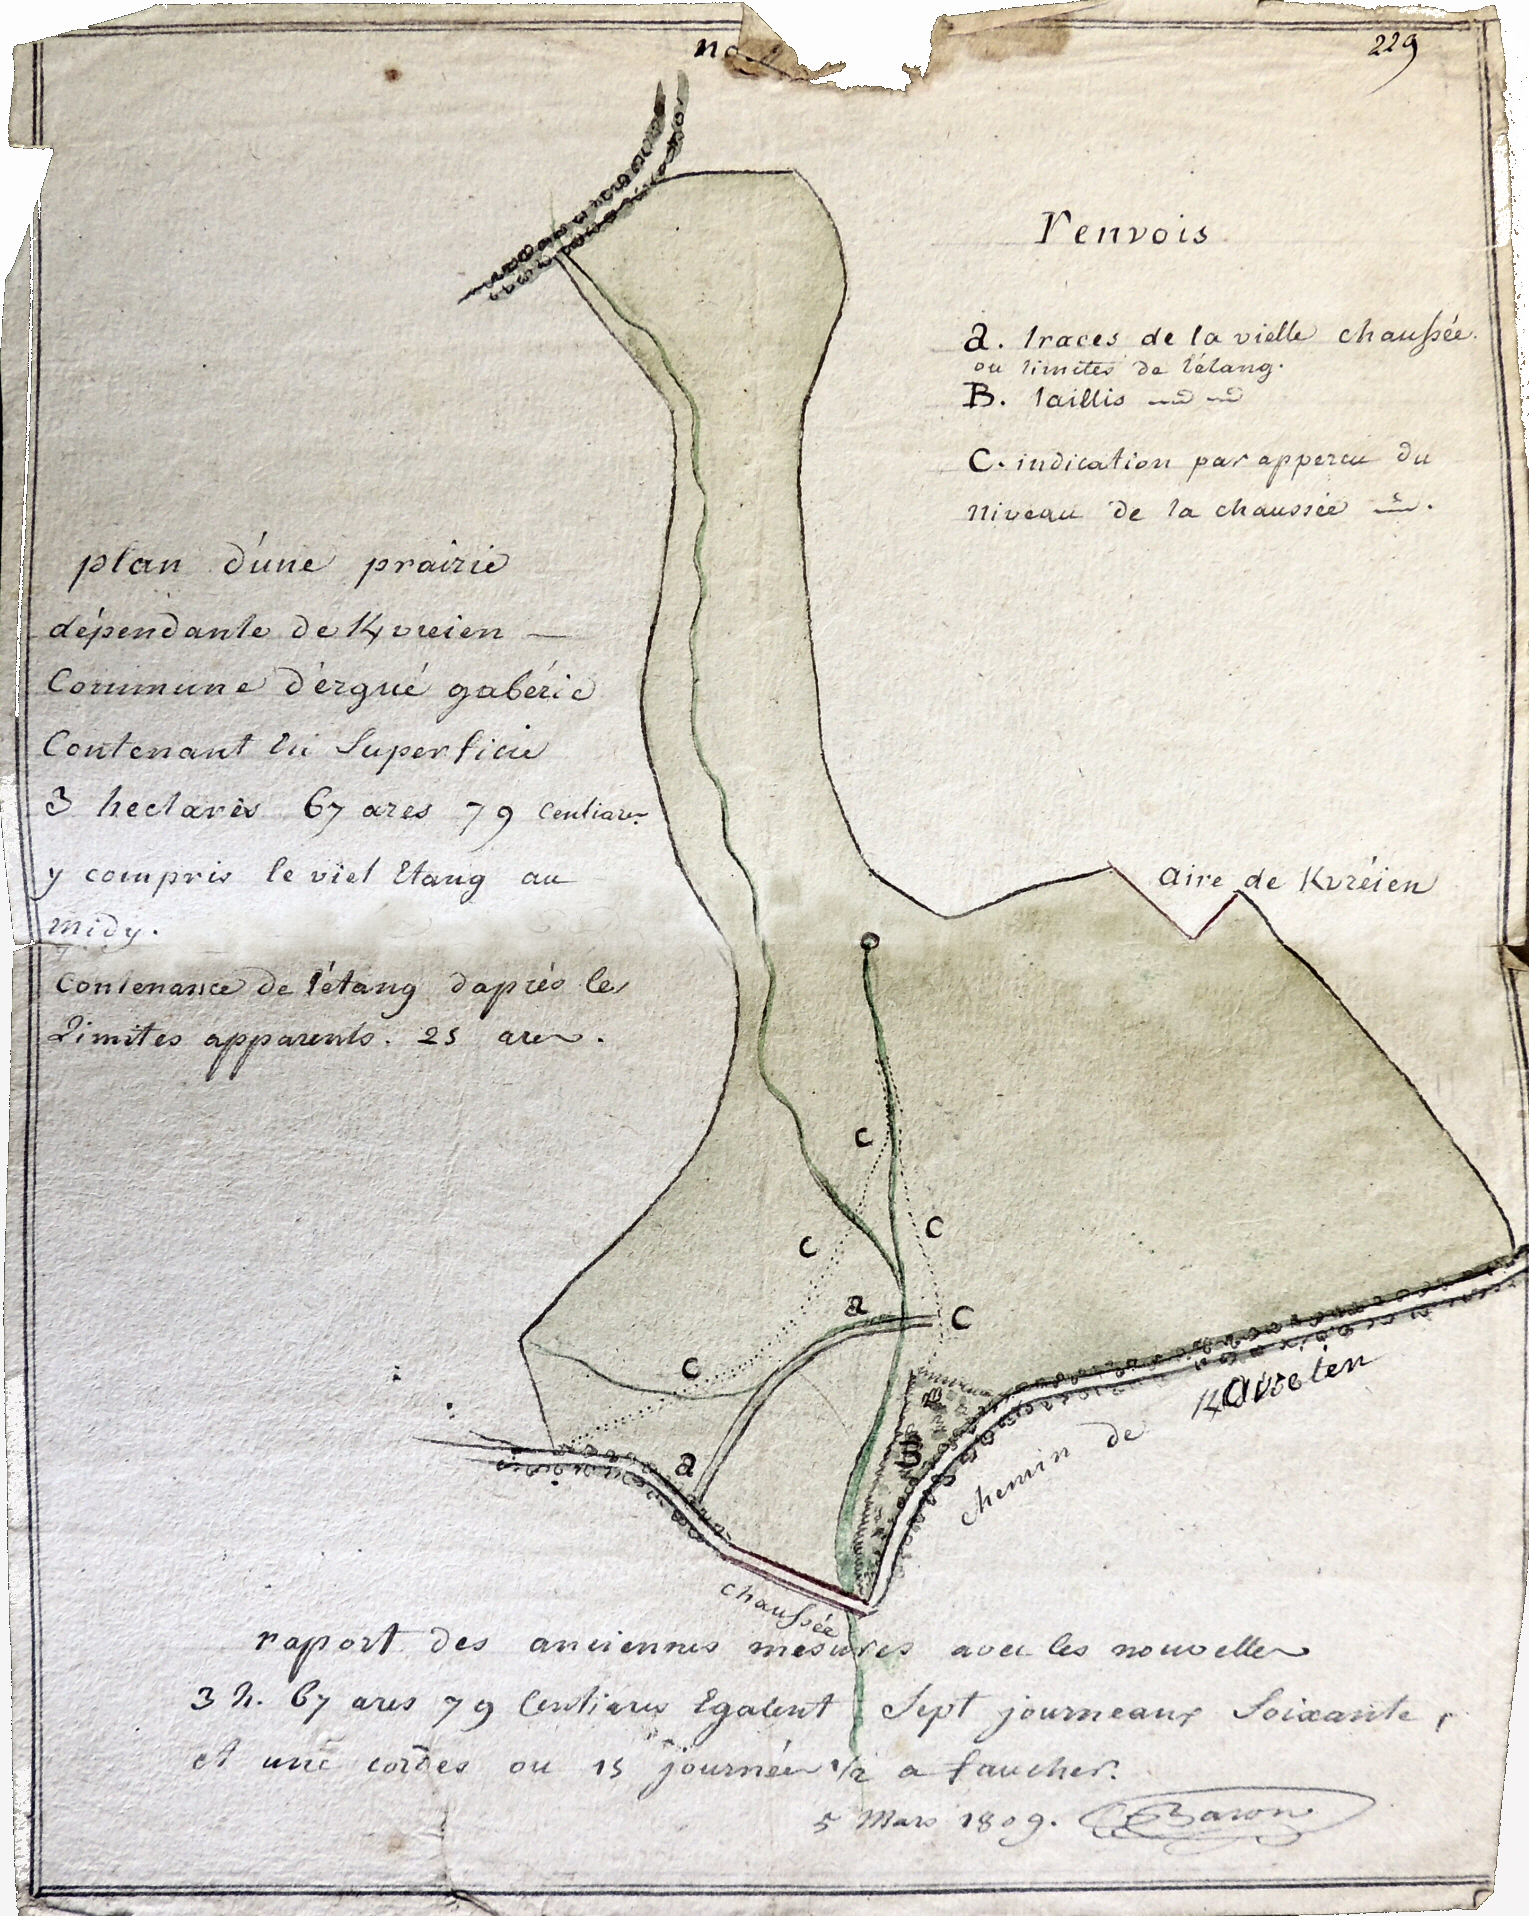 no
229
renvois
a. traces de la vielle chaussée
ou limites de l'étang.
B. taillis
C. indication par appercu du
niveau de la chaussée
plan d'une prairie
dépendante de Kvreien
Commune d'érgué gabéric
Contenant en Superficie
3 hectares 67 ares 79 Centiares
y compris le viel Etang au
midy.
Contenance de l'étang daprés les
Limites apparents. 25 ares.
aire de Kvréien
c
c
c
a
c
c
a
B
B
chemin de
chaussée
raport des anciennes mesures avec les nouvelles
3 h. 67 ares 79 Centiares Egalent Sept journeaux Soixante
et une cordes ou 15 journées 1/2 a faucher.
5 Mars 1809. Baron